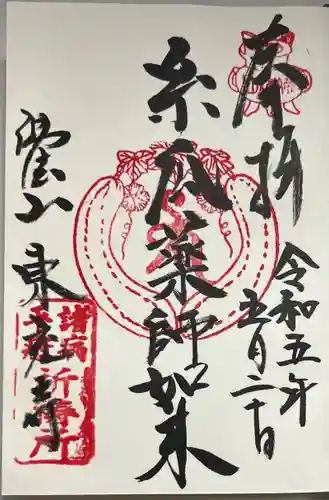 奉拝
令和五年
五月二十日
糸瓜薬師如来
山東充寺
諸病
祈祷所